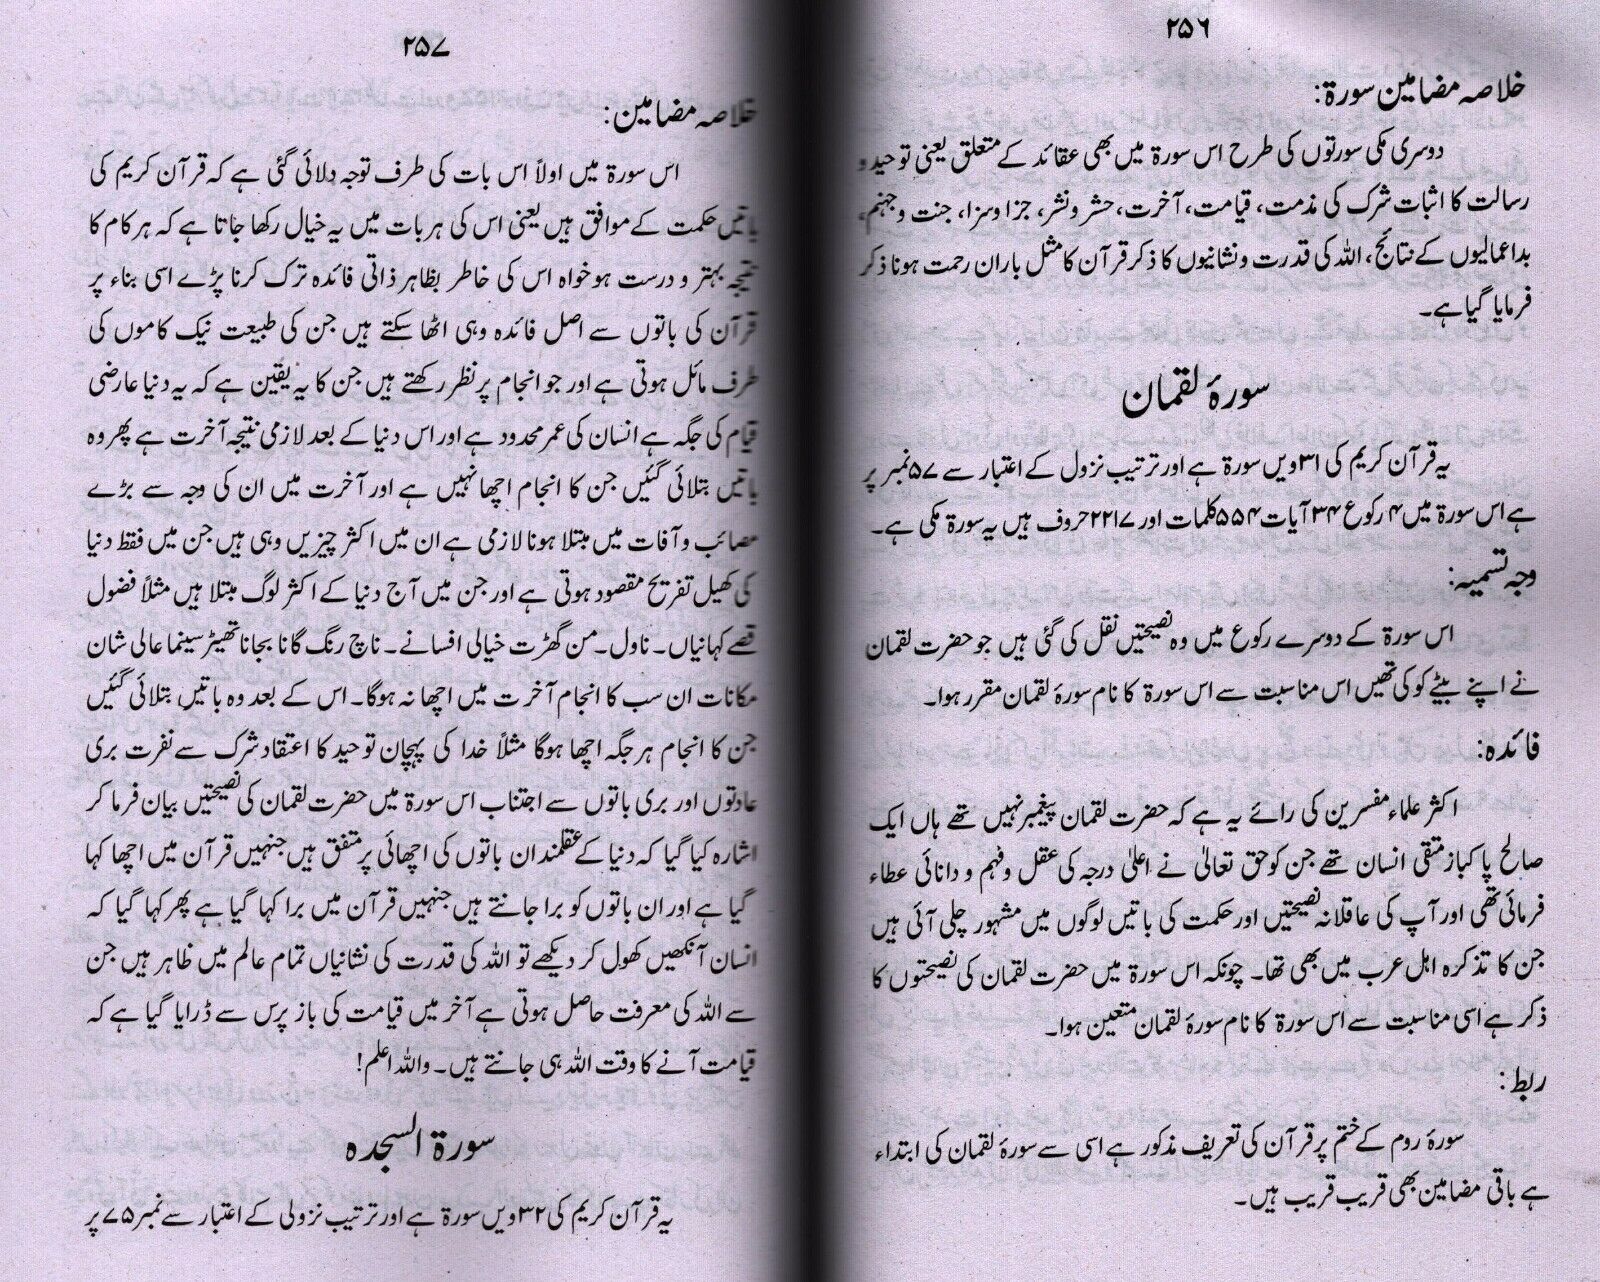 ۲۵۶
خلاصہ مضامین سورۃ:
دوسری مکی سورتوں کی طرح اس سورۃ میں بھی عقائد کے متعلق یعنی توحید و
رسالت کا اثبات شرک کی مذمت، قیامت، آخرت، حشر و نشر، جزا و سزا، جنت و جہنم،
بداعمالیوں کے نتائج، اللہ کی قدرت و نشانیوں کا ذکر قرآن کا مثل باران رحمت ہونا ذکر
فرمایا گیا ہے۔
سورۂ لقمان
یہ قرآن کریم کی ۳۱ ویں سورۃ ہے اور ترتیب نزول کے اعتبار سے ۵۷ نمبر پر
ہے اس سورۃ میں ۴ رکوع ۳۴ آیات ۵۵۴ کلمات اور ۲۲۱۷ حروف ہیں یہ سورۃ مکی ہے۔
وجہ تسمیہ:
اس سورۃ کے دوسرے رکوع میں وہ نصیحتیں نقل کی گئی ہیں جو حضرت لقمان
نے اپنے بیٹے کو کی تھیں اس مناسبت سے اس سورۃ کا نام سورۂ لقمان مقرر ہوا۔
فائدہ:
اکثر علماء مفسرین کی رائے یہ ہے کہ حضرت لقمان پیغمبر نہیں تھے ہاں ایک
صالح پاکباز متقی انسان تھے جن کو حق تعالیٰ نے اعلیٰ درجہ کی عقل و فہم و دانائی عطاء
فرمائی تھی اور آپ کی عاقلانہ نصیحتیں اور حکمت کی باتیں لوگوں میں مشہور چلی آئی ہیں
جن کا تذکرہ اہل عرب میں بھی تھا۔ چونکہ اس سورۃ میں حضرت لقمان کی نصیحتوں کا
ذکر ہے اسی مناسبت سے اس سورۃ کا نام سورۂ لقمان متعین ہوا۔
ربط:
سورۂ روم کے ختم پر قرآن کی تعریف مذکور ہے اسی سے سورۂ لقمان کی ابتداء
ہے باقی مضامین بھی قریب قریب ہیں۔
۲۵۷
خلاصہ مضامین:
اس سورۃ میں اولاً اس بات کی طرف توجہ دلائی گئی ہے کہ قرآن کریم کی
باتیں حکمت کے موافق ہیں یعنی اس کی ہر بات میں یہ خیال رکھا جاتا ہے کہ ہر کام کا
نتیجہ بہتر و درست ہو خواہ اس کی خاطر بظاہر ذاتی فائدہ ترک کرنا پڑے اسی بناء پر
قرآن کی باتوں سے اصل فائدہ وہی اٹھا سکتے ہیں جن کی طبیعت نیک کاموں کی
طرف مائل ہوتی ہے اور جو انجام پر نظر رکھتے ہیں جن کا یہ یقین ہے کہ یہ دنیا عارضی
قیام کی جگہ ہے انسان کی عمر محدود ہے اور اس دنیا کے بعد لازمی نتیجہ آخرت ہے پھر وہ
باتیں بتلائی گئیں جن کا انجام اچھا نہیں ہے اور آخرت میں ان کی وجہ سے بڑے
مصائب و آفات میں مبتلا ہونا لازمی ہے ان میں اکثر چیزیں وہی ہیں جن میں فقط دنیا
کی کھیل تفریح مقصود ہوتی ہے اور جن میں آج دنیا کے اکثر لوگ مبتلا ہیں مثلاً فضول
قصے کہانیاں۔ ناول۔ من گھڑت خیالی افسانے۔ ناچ رنگ گانا بجانا تھیٹر سینما عالی شان
مکانات ان سب کا انجام آخرت میں اچھا نہ ہوگا۔ اس کے بعد وہ باتیں بتلائی گئیں
جن کا انجام ہر جگہ اچھا ہوگا مثلاً خدا کی پہچان توحید کا اعتقاد شرک سے نفرت بری
عادتوں اور بری باتوں سے اجتناب اس سورۃ میں حضرت لقمان کی نصیحتیں بیان فرما کر
اشارہ کیا گیا کہ دنیا کے عقلمند ان باتوں کی اچھائی پر متفق ہیں جنہیں قرآن میں اچھا کہا
گیا ہے اور ان باتوں کو برا جانتے ہیں جنہیں قرآن میں برا کہا گیا ہے پھر کہا گیا کہ
انسان آنکھیں کھول کر دیکھے تو اللہ کی قدرت کی نشانیاں تمام عالم میں ظاہر ہیں جن
سے اللہ کی معرفت حاصل ہوتی ہے آخر میں قیامت کی باز پرس سے ڈرایا گیا ہے کہ
قیامت آنے کا وقت اللہ ہی جانتے ہیں۔ واللہ اعلم!
سورۃ السجدہ
یہ قرآن کریم کی ۳۲ ویں سورۃ ہے اور ترتیب نزولی کے اعتبار سے نمبر ۷۵ پر